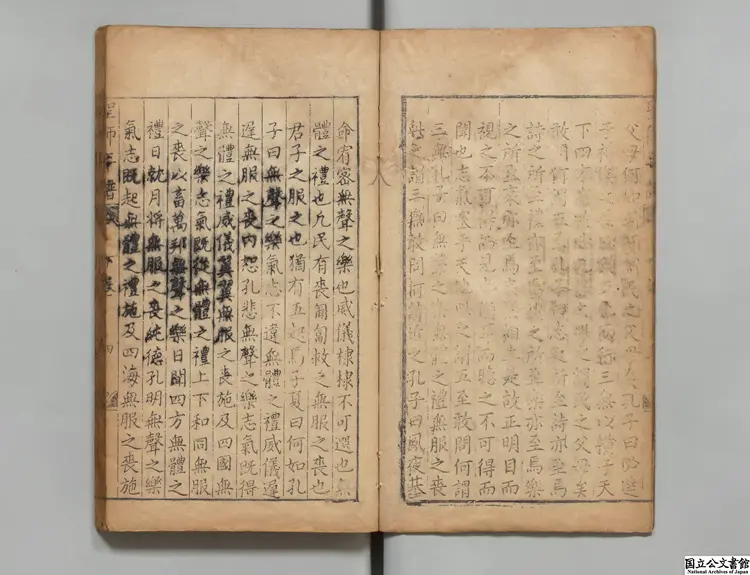 父母何如 民之父母矣孔子曰必達
三無以橫於天
下四方 民之父母矣
敢問何謂五至孔子曰志之所至詩亦至焉
詩之所至禮亦至焉禮之所至樂亦至焉樂
之所至哀亦至焉哀樂相生是故正明目而
視之不可得而見也傾耳而聽之不可得而
聞也志氣塞乎天地此之謂五至敢問何謂
三無孔子曰無聲之樂無體之禮無服之喪
此之謂三無敢問何詩近之孔子曰夙夜基
命宥密無聲之樂也威儀棣棣不可選也無
體之禮也凡民有喪匍匐救之無服之喪也
君子之服之也猶有五起焉子夏曰何如孔
子曰無聲之樂氣志不違無體之禮威儀遲
遲無服之喪内恕孔悲無聲之樂志氣既得
無體之禮威儀翼翼無服之喪施及四國無
聲之樂志氣既從無體之禮上下和同無服
之喪以畜萬邦無聲之樂日聞四方無體之
禮日就月將無服之喪純德孔明無聲之樂
氣志既起無體之禮施及四海無服之喪施
国立公文書館
National Archives of Japan